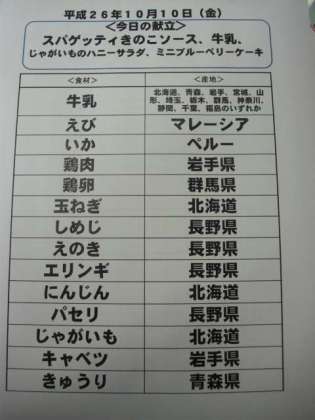 平成26年10月10日（金）
＜今日の献立＞
スパゲッティきのこソース、牛乳、
じゃがいものハニーサラダ、ミニブルーベリーケーキ
＜食材＞ ＜産地＞
牛乳 北海道、青森、岩手、宮城、山
形、埼玉、栃木、群馬、神奈川、
静岡、千葉、福島のいずれか
えび マレーシア
いか ペルー
鶏肉 岩手県
鶏卵 群馬県
玉ねぎ 北海道
しめじ 長野県
えのき 長野県
エリンギ 長野県
にんじん 北海道
パセリ 長野県
じゃがいも 北海道
キャベツ 岩手県
きゅうり 青森県